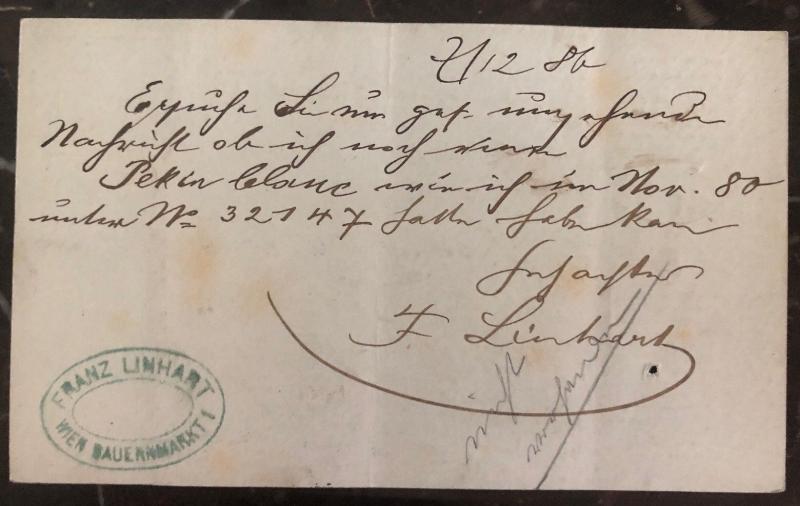 7/12 86
Ersuche Sie um gef. umgehende
Nachricht ob ich noch
Pekin blanc wie ich im Nov. 80
unter No 32147 hatte haben kan
F Linhart
nicht
FRANZ LINHART
WIEN BAUERNMARKT 1